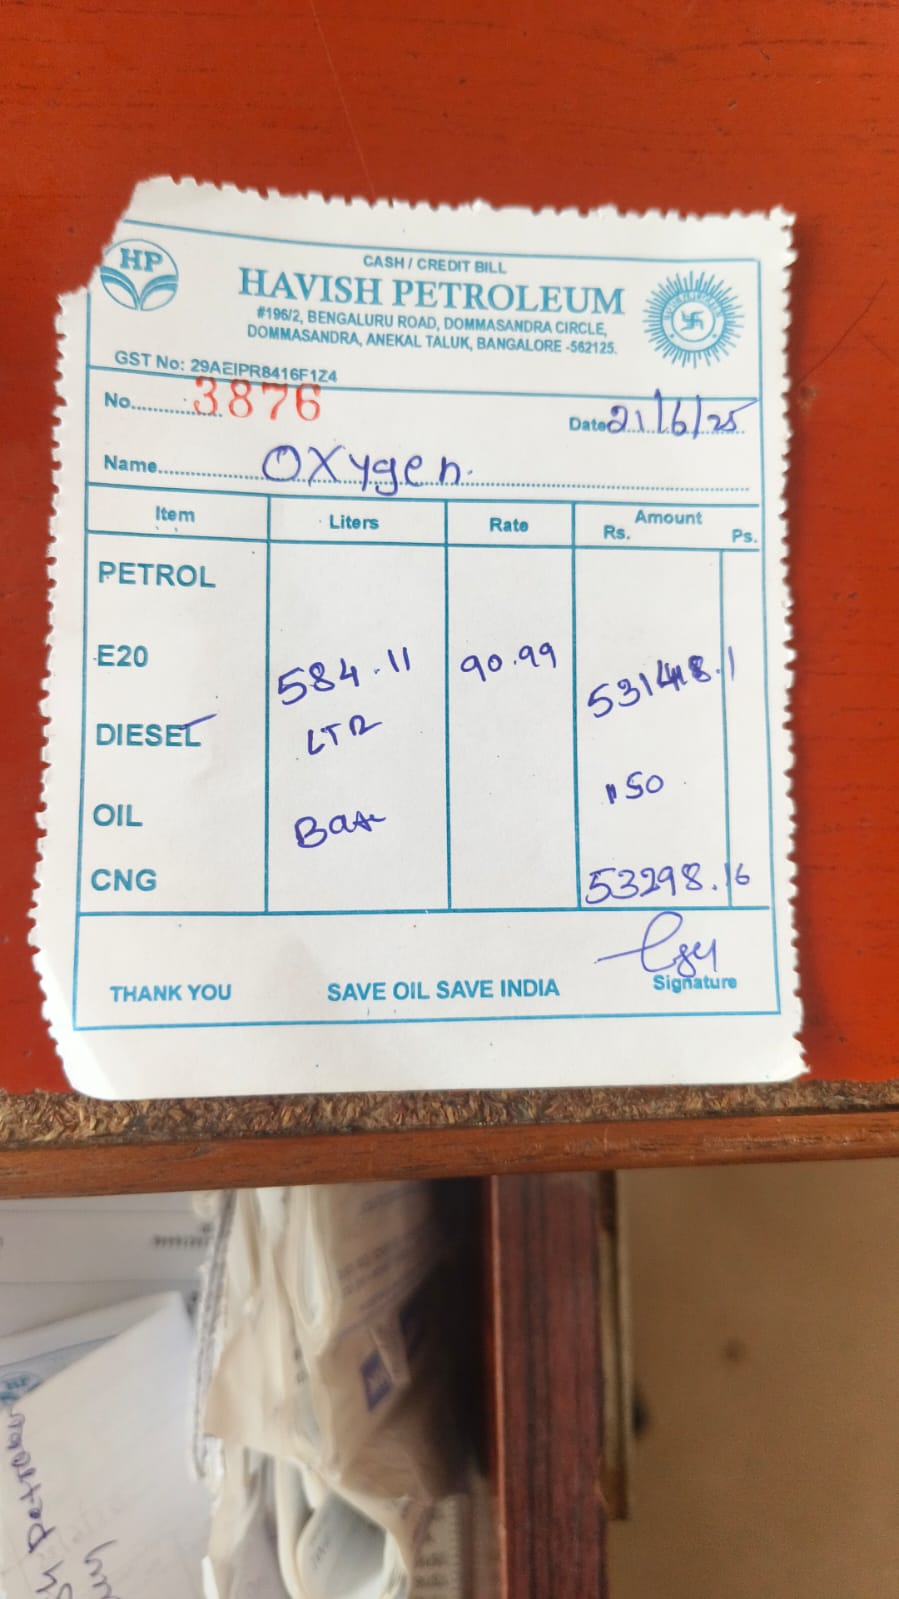 HP
CASH / CREDIT BILL
HAVISH PETROLEUM
#196/2, BENGALURU ROAD, DOMMASANDRA CIRCLE,
DOMMASANDRA, ANEKAL TALUK, BANGALORE -562125.
GST No: 29AEIPR8416F1Z4
No. 3876
Date 21/6/25
Name Oxygen.
Item Liters Rate Amount
Rs. Ps.
PETROL
E20 584.11 90.99
DIESEL LTR
150
OIL
CNG 53298.16
THANK YOU SAVE OIL SAVE INDIA Signature